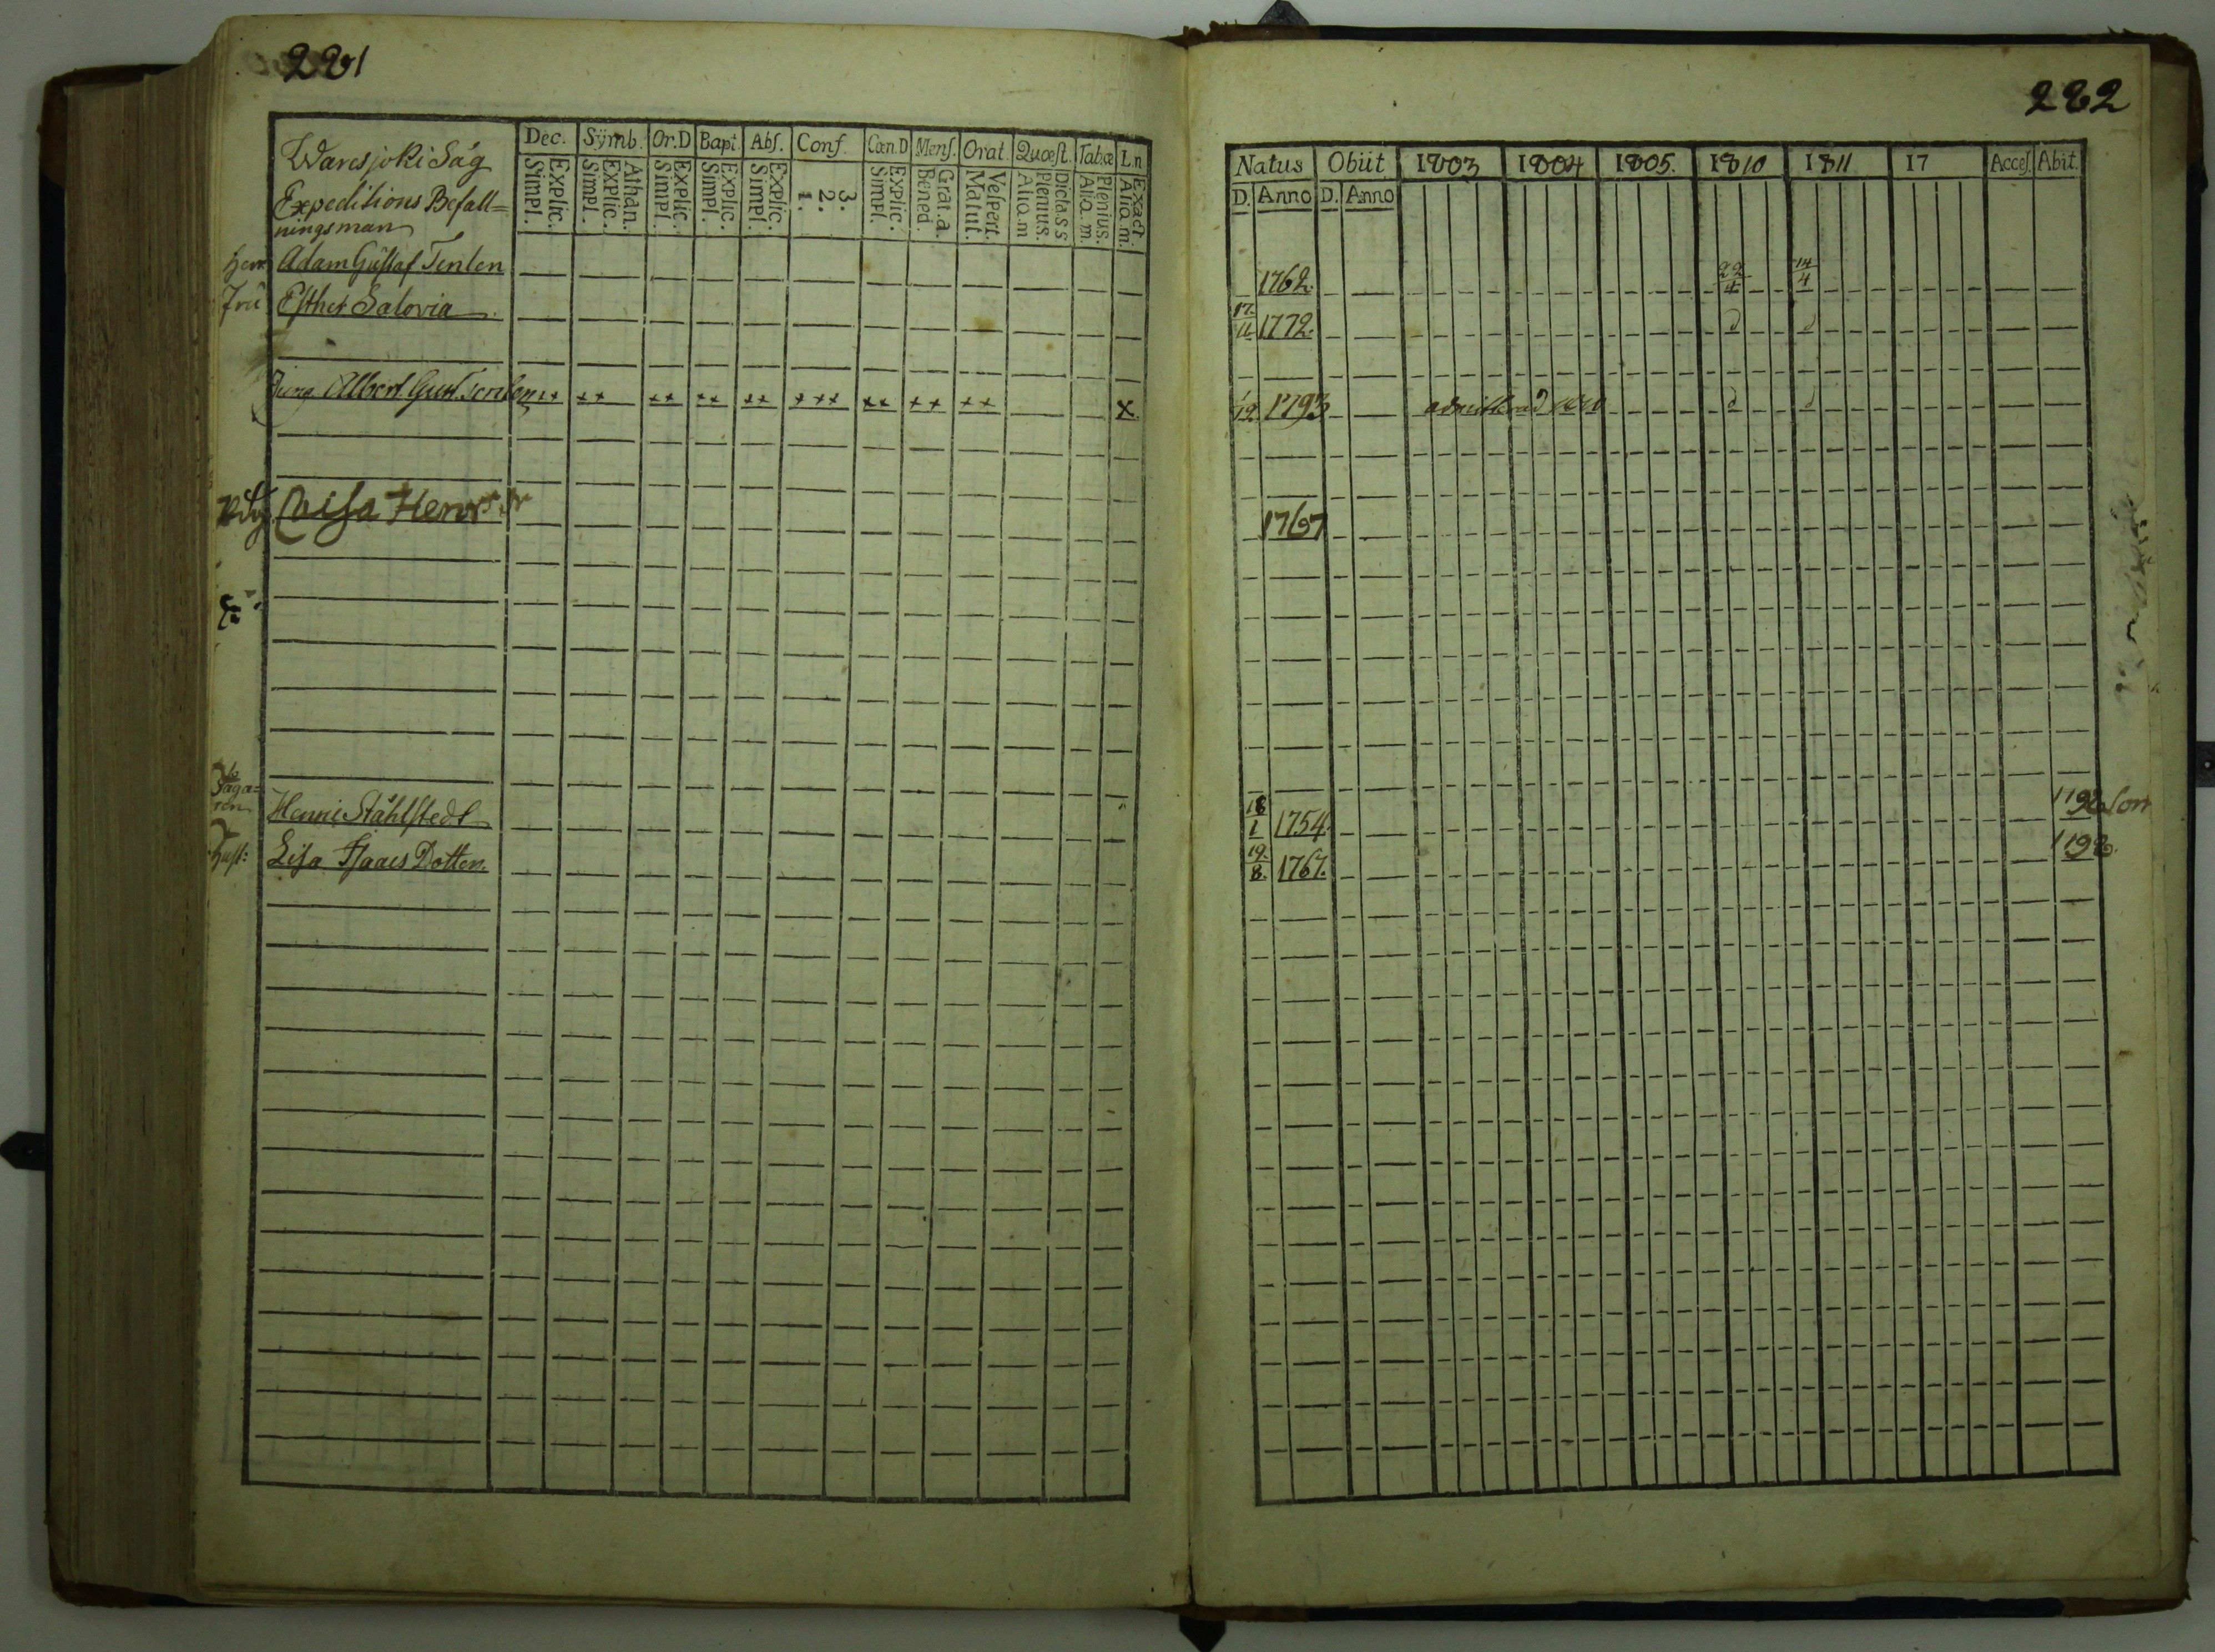 221
Waresjoki Såg
Expeditions Befall=
ningsman
Dec. Sÿmb. Or.D Bapt. Abſ. Conf. Cœn.D Menſ. Orat. Quæſt. Tabæ L.n
Explic. Simpl. Athan. Explic. Simpl. Explic. Simpl. Explic. Simpl. Explic. Simpl. 3. 2. 1. Explic. Simpl. Grat.a. Bened. Veſpert. Matut. Dicta.s.s Plenius. Aliq.m Plenius. Aliq.m. Exact. Aliq.m.
Herr Adam Gustaf Tenlen
Fru Esther Salovia
Albert Gust. Tenlen ++ ++ ++ ++ ++ +++ ++ ++ ++ x
Caisa Henr:s dr
Såga=
ren
Henric Ståhlstedt
Hust: Lisa Isaacs Dotter.
222
Natus Obiit 1803 1804 1805. 1810 1811 17 Acceſ. Abiit.
D. Anno D. Anno
1762. 22/4 14/4
17/11 1772. d d
1793 admitterad 1810 d d
1767
18/1 1754. 1198
19/8. 1767. 1198.